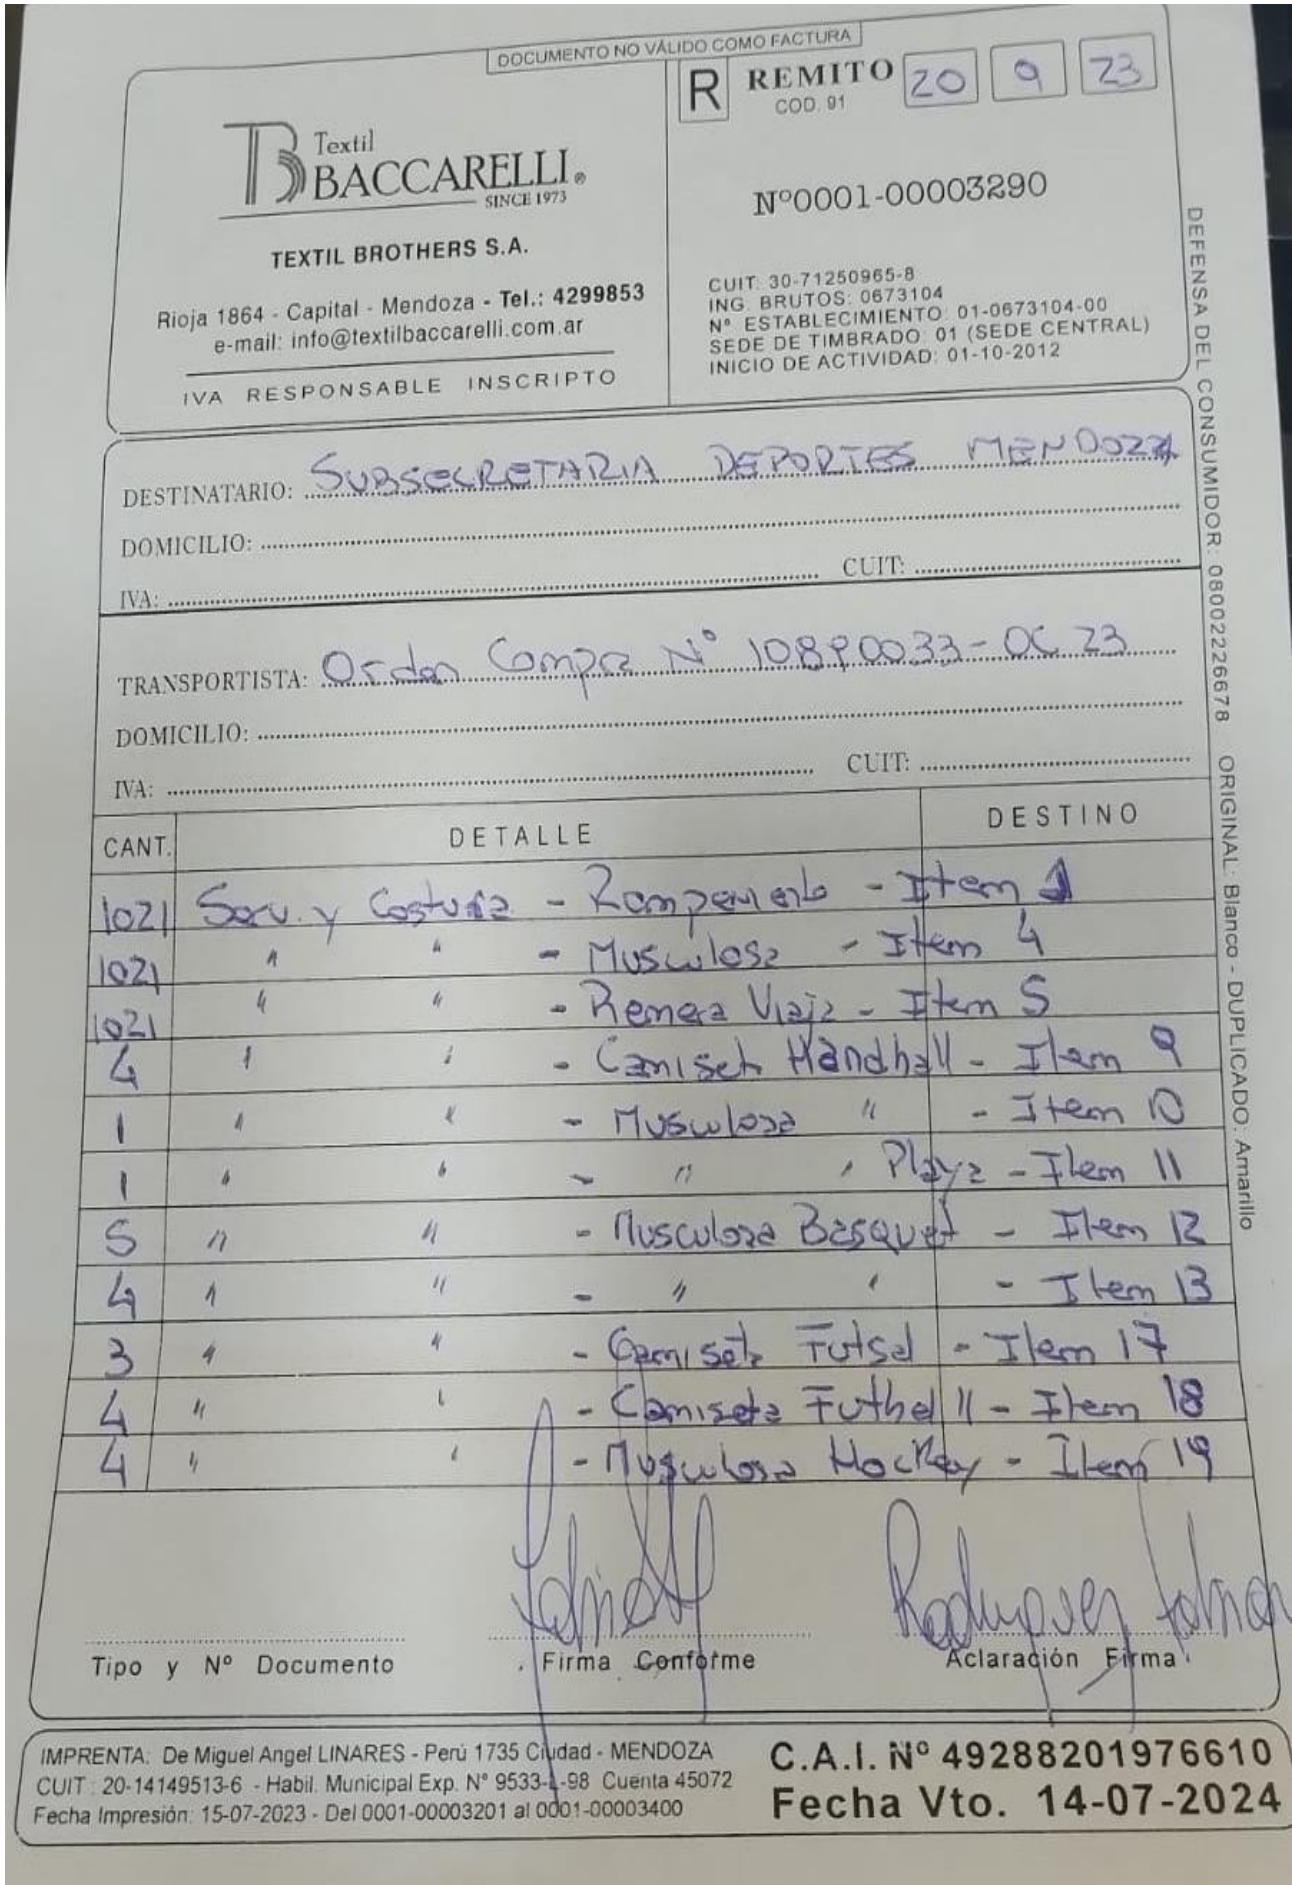 DOCUMENTO NO VÁLIDO COMO FACTURA
Textil
BACCARELLI®
SINCE 1973
TEXTIL BROTHERS S.A.
Rioja 1864 - Capital - Mendoza - Tel.: 4299853
e-mail: info@textilbaccarelli.com.ar
IVA RESPONSABLE INSCRIPTO
R REMITO 20 9 23
COD. 91
Nº0001-00003290
CUIT: 30-71250965-8
ING. BRUTOS: 0673104
Nº ESTABLECIMIENTO: 01-0673104-00
SEDE DE TIMBRADO: 01 (SEDE CENTRAL)
INICIO DE ACTIVIDAD: 01-10-2012
DESTINATARIO: SUBSECRETARIA DEPORTES MENDOZA
DOMICILIO:
IVA: CUIT:
TRANSPORTISTA: Orden Compra Nº 10890033-OC 23
DOMICILIO:
IVA: CUIT:
CANT. DETALLE DESTINO
1021 Serv. y Costura - Rompeviento - Item 1
1021 " " - Musculosa - Item 4
1021 " " - Remera Viaje - Item 5
4 " " - Camiseta Handball - Item 9
1 " " - Musculosa " - Item 10
1 " " - " " Playa - Item 11
5 " " - Musculosa Basquet - Item 12
4 " " - " " - Item 13
3 " " - Camiseta Futsal - Item 17
4 " " - Camiseta Futbol 11 - Item 18
4 " " - Musculosa Hockey - Item 19
Rodriguez
Tipo y Nº Documento Firma Conforme Aclaración Firma
IMPRENTA: De Miguel Angel LINARES - Perú 1735 Ciudad - MENDOZA
CUIT: 20-14149513-6 - Habil. Municipal Exp. Nº 9533-L-98 Cuenta 45072
Fecha Impresión: 15-07-2023 - Del 0001-00003201 al 0001-00003400
C.A.I. Nº 49288201976610
Fecha Vto. 14-07-2024
DEFENSA DEL CONSUMIDOR: 08002226678 ORIGINAL: Blanco - DUPLICADO: Amarillo